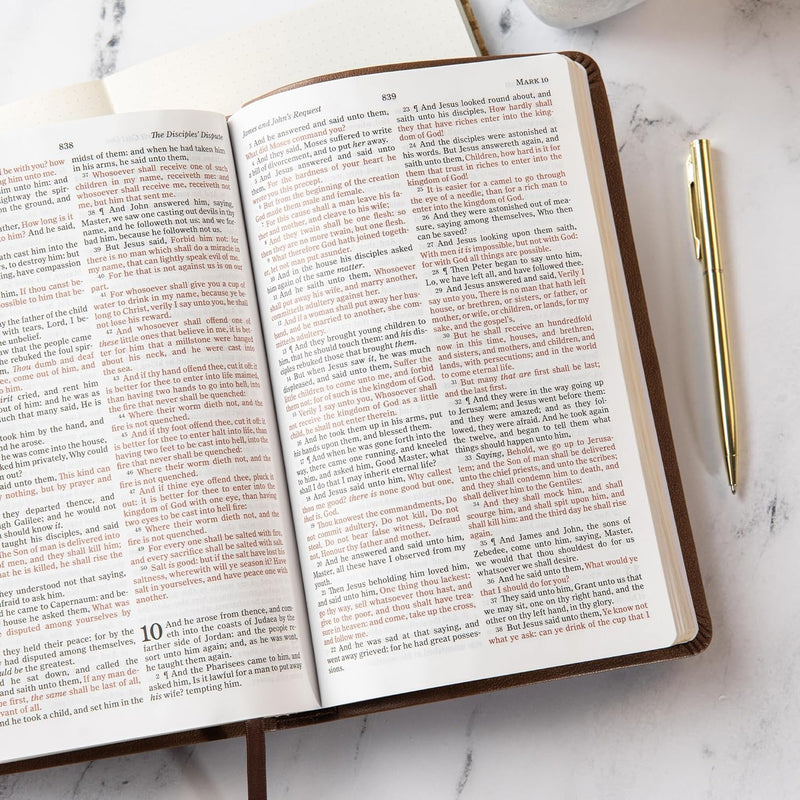 838
The Disciples' Dispute
be with you? how
him unto me.
unto him: and
straightway the spir-
on the ground, and
father, How long is it
to him? And he said,
hath cast him into the
waters, to destroy him: but
thing, have compassion
him, If thou canst be-
possible to him that be-
the father of the child
with tears, Lord, I be-
unbelief.
that the people came
he rebuked the foul spir-
Thou dumb and deaf
thee, come out of him, and
him.
spirit cried, and rent him
out of him: and he was as
that many said, He is
took him by the hand, and
he arose.
he was come into the house,
asked him privately, Why could
out?
said unto them, This kind can
by nothing, but by prayer and
they departed thence, and
through Galilee; and he would not
should know it.
taught his disciples, and said
The Son of man is delivered into
of men, and they shall kill him;
that he is killed, he shall rise the
they understood not that saying,
afraid to ask him.
he came to Capernaum: and be-
house he asked them, What was
ye disputed among yourselves by
they held their peace: for by the
had disputed among themselves,
should be the greatest.
he sat down, and called the
and saith unto them, If any man de-
be first, the same shall be last of all,
servant of all.
And he took a child, and set him in the
midst of them: and when he had taken him
in his arms, he said unto them,
37 Whosoever shall receive one of such
children in my name, receiveth me: and
whosoever shall receive me, receiveth not
me, but him that sent me.
38 ¶ And John answered him, saying,
Master, we saw one casting out devils in thy
name, and he followeth not us: and we for-
bad him, because he followeth not us.
39 But Jesus said, Forbid him not: for
there is no man which shall do a miracle in
my name, that can lightly speak evil of me.
40 For he that is not against us is on our
part.
41 For whosoever shall give you a cup of
water to drink in my name, because ye be-
long to Christ, verily I say unto you, he shall
not lose his reward.
42 And whosoever shall offend one of
these little ones that believe in me, it is bet-
ter for him that a millstone were hanged
about his neck, and he were cast into
the sea.
43 And if thy hand offend thee, cut it off: it
is better for thee to enter into life maimed,
than having two hands to go into hell, into
the fire that never shall be quenched:
44 Where their worm dieth not, and the
fire is not quenched.
45 And if thy foot offend thee, cut it off: it
is better for thee to enter halt into life, than
having two feet to be cast into hell, into the
fire that never shall be quenched:
46 Where their worm dieth not, and the
fire is not quenched.
47 And if thine eye offend thee, pluck it
out: it is better for thee to enter into the
kingdom of God with one eye, than having
two eyes to be cast into hell fire:
48 Where their worm dieth not, and the
fire is not quenched.
49 For every one shall be salted with fire,
and every sacrifice shall be salted with salt.
50 Salt is good: but if the salt have lost his
saltness, wherewith will ye season it? Have
salt in yourselves, and have peace one with
another.
10 And he arose from thence, and com-
eth into the coasts of Judaea by the
farther side of Jordan: and the people re-
sort unto him again; and, as he was wont,
he taught them again.
2 ¶ And the Pharisees came to him, and
asked him, Is it lawful for a man to put away
his wife? tempting him.
James and John's Request
839
MARK 10
3 And he answered and said unto them,
What did Moses command you?
4 And they said, Moses suffered to write
a bill of divorcement, and to put her away.
5 And Jesus answered and said unto
them, For the hardness of your heart he
wrote you this precept.
6 But from the beginning of the creation
God made them male and female.
7 For this cause shall a man leave his fa-
ther and mother, and cleave to his wife;
8 And they twain shall be one flesh: so
then they are no more twain, but one flesh.
9 What therefore God hath joined togeth-
er, let not man put asunder.
10 And in the house his disciples asked
him again of the same matter.
11 And he saith unto them, Whosoever
shall put away his wife, and marry another,
committeth adultery against her.
12 And if a woman shall put away her hus-
band, and be married to another, she com-
mitteth adultery.
13 ¶ And they brought young children to
him, that he should touch them: and his dis-
ciples rebuked those that brought them.
14 But when Jesus saw it, he was much
displeased, and said unto them, Suffer the
little children to come unto me, and forbid
them not: for of such is the kingdom of God.
15 Verily I say unto you, Whosoever shall
not receive the kingdom of God as a little
child, he shall not enter therein.
16 And he took them up in his arms, put
his hands upon them, and blessed them.
17 ¶ And when he was gone forth into the
way, there came one running, and kneeled
to him, and asked him, Good Master, what
shall I do that I may inherit eternal life?
18 And Jesus said unto him, Why callest
thou me good? there is none good but one,
that is, God.
19 Thou knowest the commandments, Do
not commit adultery, Do not kill, Do not
steal, Do not bear false witness, Defraud
not, Honour thy father and mother.
20 And he answered and said unto him,
Master, all these have I observed from my
youth.
21 Then Jesus beholding him loved him,
and said unto him, One thing thou lackest:
go thy way, sell whatsoever thou hast, and
give to the poor, and thou shalt have trea-
sure in heaven: and come, take up the cross,
and follow me.
22 And he was sad at that saying, and
went away grieved: for he had great posses-
sions.
23 ¶ And Jesus looked round about, and
saith unto his disciples, How hardly shall
they that have riches enter into the king-
dom of God!
24 And the disciples were astonished at
his words. But Jesus answereth again, and
saith unto them, Children, how hard is it for
them that trust in riches to enter into the
kingdom of God!
25 It is easier for a camel to go through
the eye of a needle, than for a rich man to
enter into the kingdom of God.
26 And they were astonished out of mea-
sure, saying among themselves, Who then
can be saved?
27 And Jesus looking upon them saith,
With men it is impossible, but not with God:
for with God all things are possible.
28 ¶ Then Peter began to say unto him,
Lo, we have left all, and have followed thee.
29 And Jesus answered and said, Verily I
say unto you, There is no man that hath left
house, or brethren, or sisters, or father, or
mother, or wife, or children, or lands, for my
sake, and the gospel's,
30 But he shall receive an hundredfold
now in this time, houses, and brethren,
and sisters, and mothers, and children, and
lands, with persecutions; and in the world
to come eternal life.
31 But many that are first shall be last;
and the last first.
32 ¶ And they were in the way going up
to Jerusalem; and Jesus went before them:
and they were amazed; and as they fol-
lowed, they were afraid. And he took again
the twelve, and began to tell them what
things should happen unto him,
33 Saying, Behold, we go up to Jerusa-
lem; and the Son of man shall be delivered
unto the chief priests, and unto the scribes;
and they shall condemn him to death, and
shall deliver him to the Gentiles:
34 And they shall mock him, and shall
scourge him, and shall spit upon him, and
shall kill him: and the third day he shall rise
again.
35 ¶ And James and John, the sons of
Zebedee, come unto him, saying, Master,
we would that thou shouldest do for us
whatsoever we shall desire.
36 And he said unto them, What would ye
that I should do for you?
37 They said unto him, Grant unto us that
we may sit, one on thy right hand, and the
other on thy left hand, in thy glory.
38 But Jesus said unto them, Ye know not
what ye ask: can ye drink of the cup that I